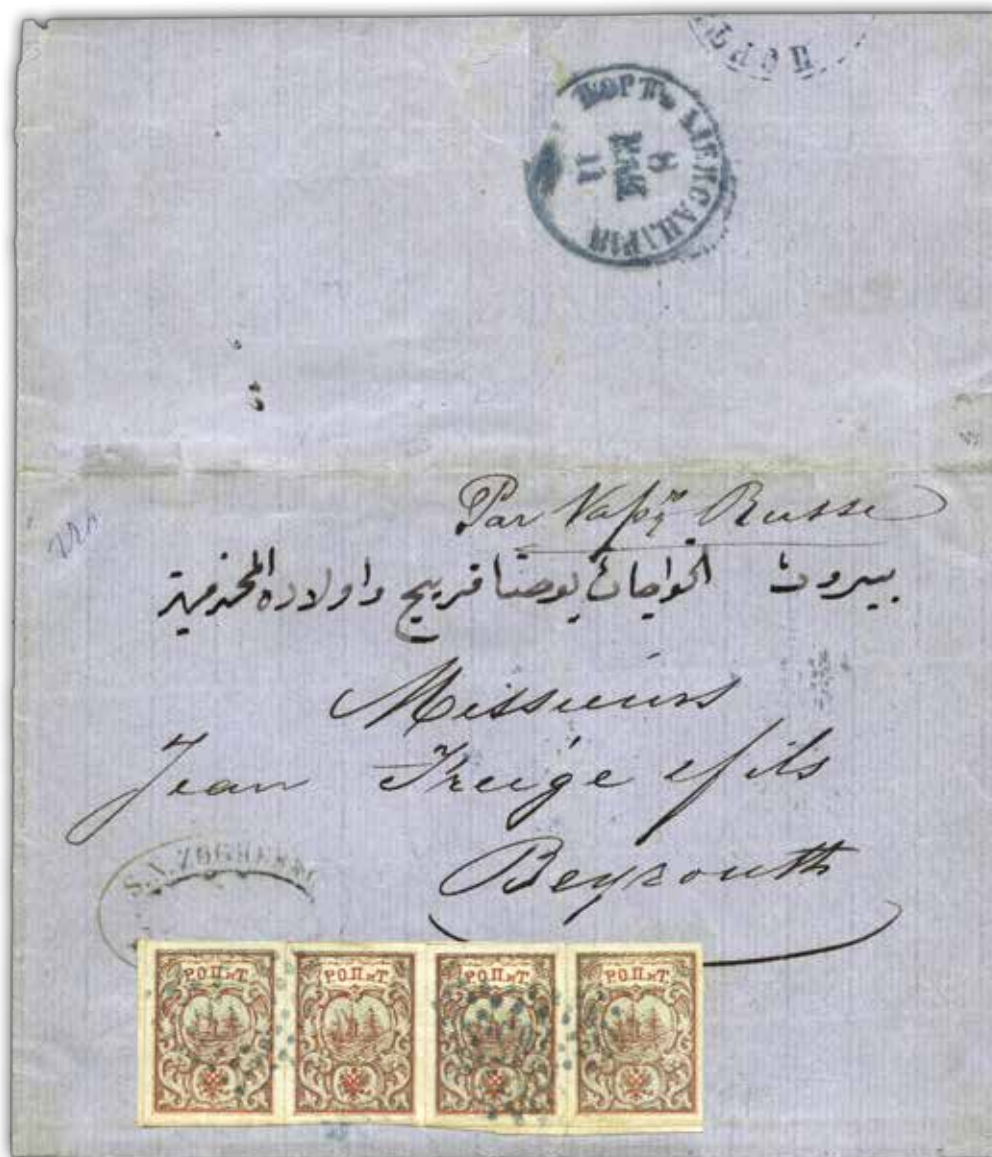 ПОРТ
ПОРТЪ АЛЕКСАНДРІЯ
8
МАЙ
11
Par Vap.r Russe
بيروت الخواجات يوحنا فريج واولاده المحترمين
Messieurs
Jean Freige & fils
Beyrouth
Р.О.П.иТ. Р.О.П.иТ. Р.О.П.иТ. Р.О.П.иТ.